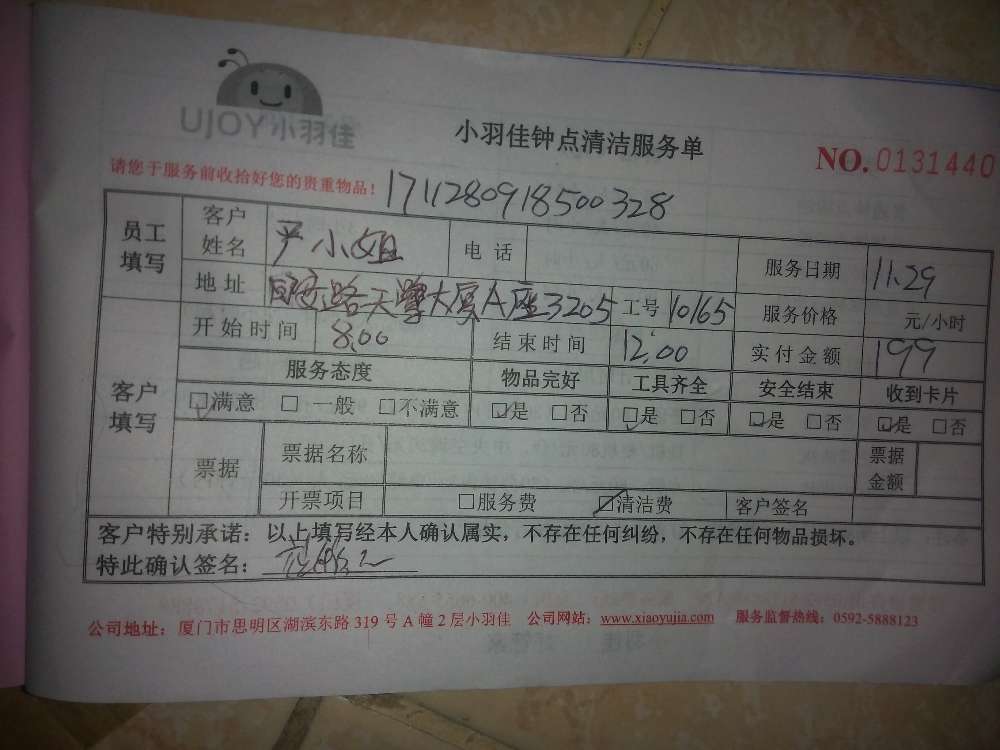 UJOY小羽佳
小羽佳钟点清洁服务单
NO. 0131440
请您于服务前收拾好您的贵重物品!
171128091850 0328
员工填写
客户姓名 严小姐 电话 服务日期 11.29
地址 路天 大厦A座3205 工号 10165 服务价格 元/小时
客户填写
开始时间 8:00 结束时间 12:00 实付金额 199
服务态度 物品完好 工具齐全 安全结束 收到卡片
□满意 □一般 □不满意 □是 □否 □是 □否 □是 □否 □是 □否
票据 票据名称 票据金额
开票项目 □服务费 □清洁费 客户签名
客户特别承诺:以上填写经本人确认属实,不存在任何纠纷,不存在任何物品损坏。
特此确认签名:
公司地址:厦门市思明区湖滨东路 319 号 A 幢 2 层小羽佳 公司网站:www.xiaoyujia.com 服务监督热线:0592-5888123